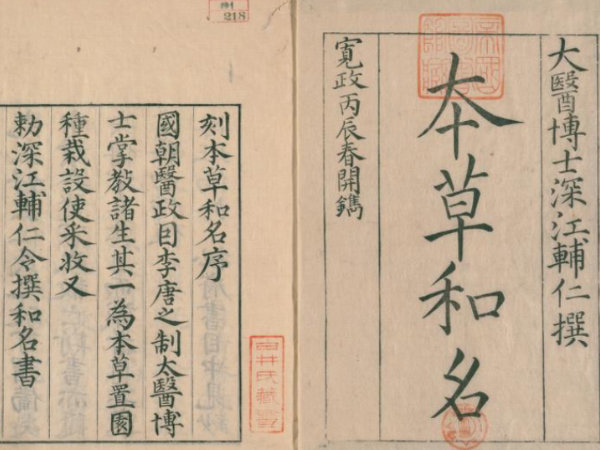 大醫博士深江輔仁撰
本草和名
寛政丙辰春開鐫
刻本草和名序
國朝醫政因李唐之制太醫博
士掌教諸生其一為本草置園
種栽設使采收又
勅深江輔仁令撰和名書
218